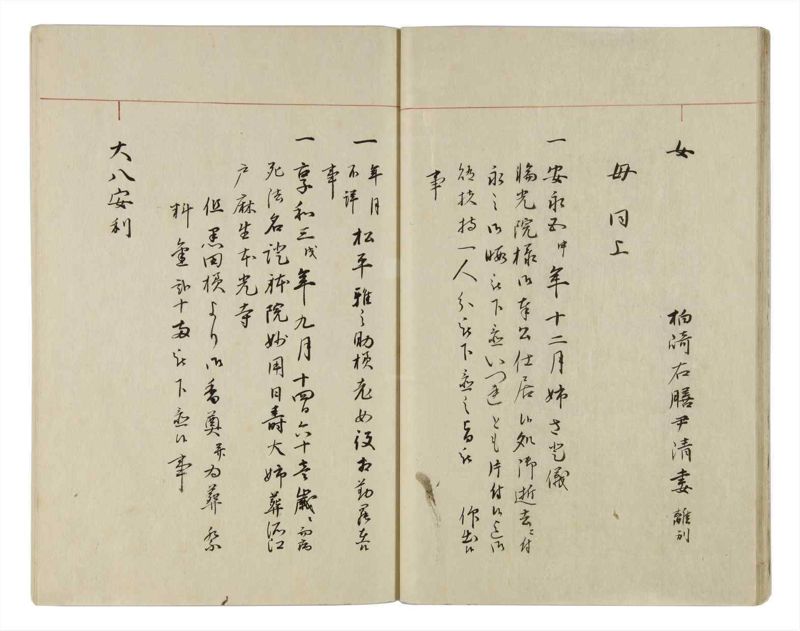 女
母同上
柏崎右膳尹清妻 離別
一 安永五申年十二月姉さと儀
院様御奉公仕居候処御逝去ニ付
永之御暇被下置いつれとも片付候迄御
扶持一人分被下置之旨被 仰出候
事
一 年月不詳 松平雅之助様老女役相勤罷在
事
一 享和三戌年九月十四日六十壱歳ニ而病
死法名 院妙用日壽大姉葬 江
戸麻生本光寺
但黒田様より御香奠并為葬祭
料金 十両被下置候事
大八安利